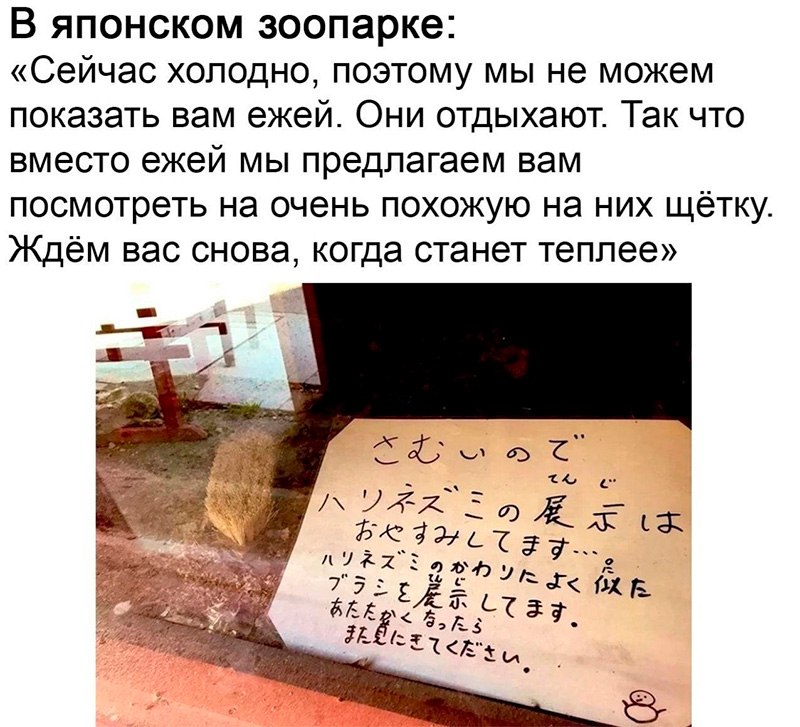 В японском зоопарке:
«Сейчас холодно, поэтому мы не можем
показать вам ежей. Они отдыхают. Так что
вместо ежей мы предлагаем вам
посмотреть на очень похожую на них щётку.
Ждём вас снова, когда станет теплее»
さむいので
てんじ
ハリネズミの展示は
おやすみしてます…
ハリネズミのかわりによく似た
に
ブラシを展示してます。
てんじ
あたたかくなったら
また見にきてください。